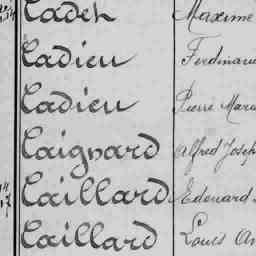 Cadet Maxime
Cadieu Ferdinand
Cadieu Pierre Marie
Caignard Alfred Joseph
Caillard Edouard
Caillard Louis